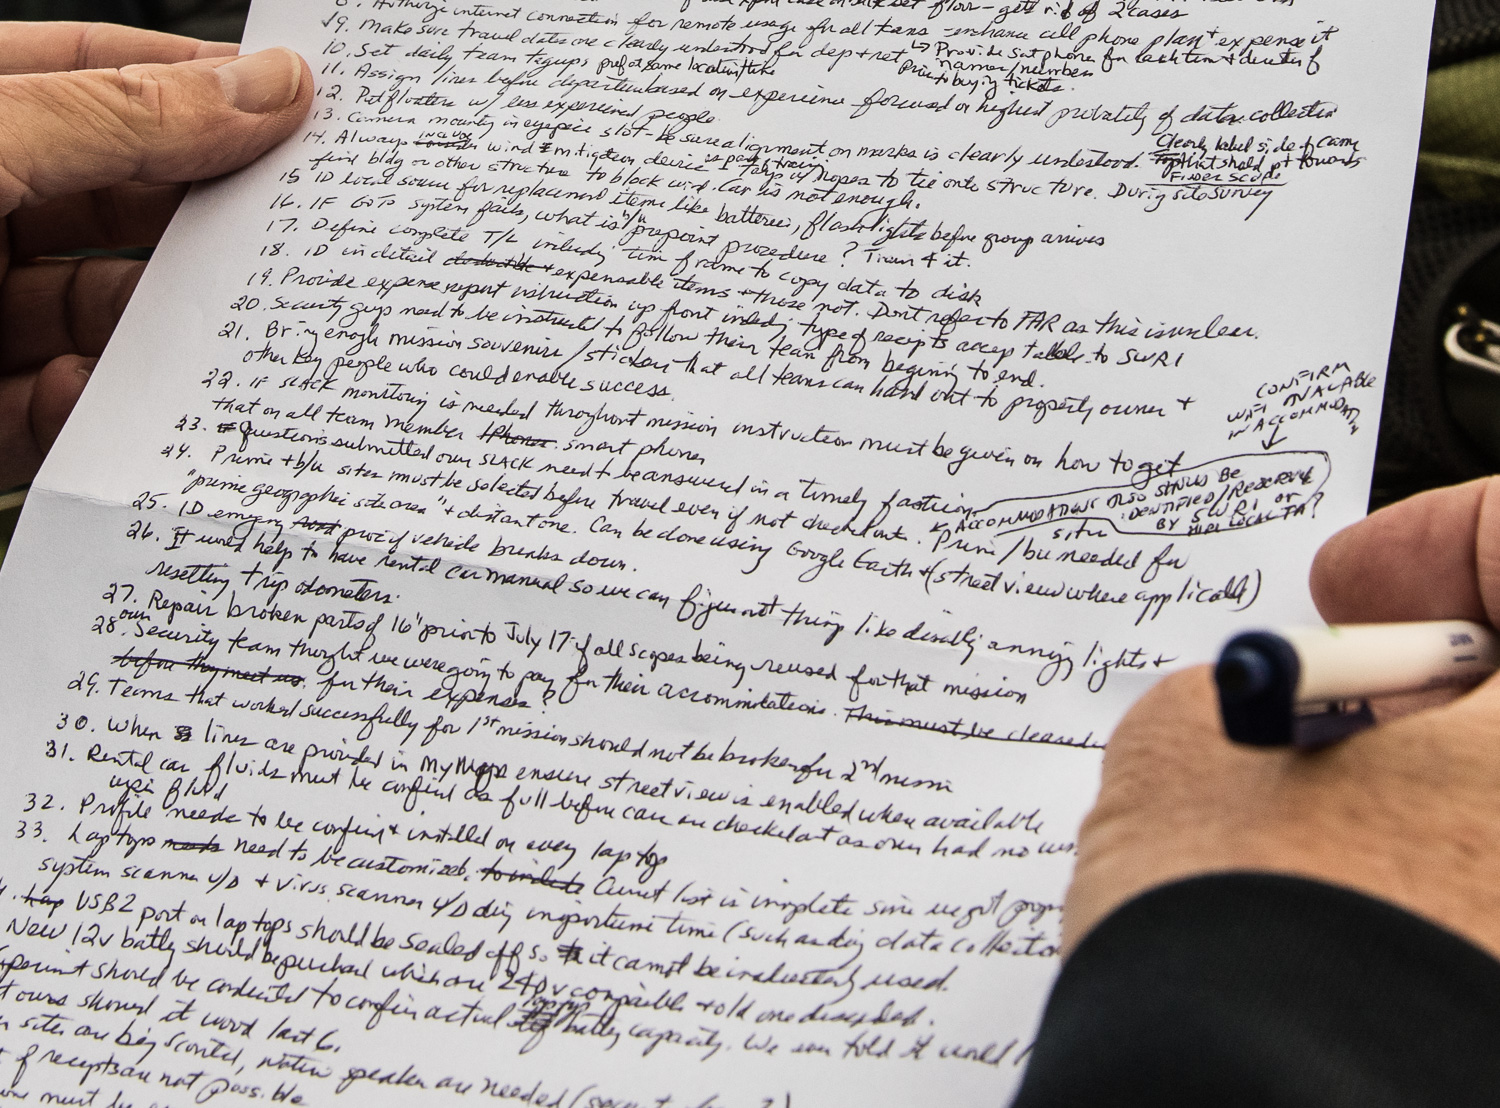 8. Authorize internet connection for remote usage for all teams - enhance cell phone plan + expense it
9. Make sure travel dates are clearly understood for dep + ret → Provide Sat phones for each team + direct of
names/numbers
prior to buying tickets.
10. Set daily team tagups pref at same location/time
11. Assign lines before departure based on experience focused on highest probability of data collection
12. Put floaters w/ less experienced people.
13. Camera mounting in eyepiece slot - be sure alignment on marks is clearly understood.
Clearly label side of came
that should pt towards
Finder scope
14. Always wind mitigation device ropes to tie onto structure. During site survey
find bldg or other structure to block wind. Car is not enough.
15 ID local source for replacement items like batteries, flashlights before group arrives
16. IF GoTo system fails, what is b/u pinpoint procedure? Train 4 it.
17. Define complete T/L including time frame to copy data to disk
18. ID in detail expensable items + those not. Don't refer to FAR as this is unclear.
19. Provide expense report instruction up front including type of receipts acceptable to SWRI
20. Security guys need to be instructed to follow their team from beginning to end.
21. Bring enough mission souvenirs/stickers that all teams can hand out to property owner +
other key people who could enable success.
22. IF SLACK monitoring is needed throughout mission instruction must be given on how to get
that on all team member iPhones. smart phones
CONFIRM
WIFI AVAILABLE
IN ACCOMMODATION
23. Questions submitted on SLACK need to be answered in a timely fashion.
ACCOMMODATIONS ALSO SHOULD BE
IDENTIFIED/RESERVED
BY SWRI OR
LOCAL TA?
24. Prime + b/u sites must be selected before travel even if not checked out. Prime/bu needed for
"prime geographic site area" + distant one. Can be done using Google Earth + (street view where applicable)
25. ID emergency proc if vehicle breaks down.
26. It would help to have rental car manual so we can figure out things like disabling annoying lights +
resetting trip odometers.
27. Repair broken parts of 16" prior to July 17 if all scopes being reused for that mission
28. Our Security team thought we were going to pay for their accommodations. This must be cleared
before they meet us. for their expenses?
29. Teams that worked successfully for 1st mission should not be broken for 2nd mission
30. When lines are provided in MyMaps ensure street view is enabled when available
31. Rental car fluids must be confirmed as full before cars are checked out as ours had no
wiper fluid
32. Profile needs to be confirmed + installed on every laptop
33. Laptops needs need to be customized. to include Current list is incomplete since we got
system scanner u/D + virus scanner u/D during important time (such as during data collection
USB2 port on laptops should be sealed off so it cannot be inadvertently used.
New 12v battery should be purchased which are 240v compatible + old ones discarded.
should be conducted to confirm actual laptop battery capacity. We were told it would
ours showed it would last 6.
sites are being scouted, native speaker are needed
if receipts are not possible
must be